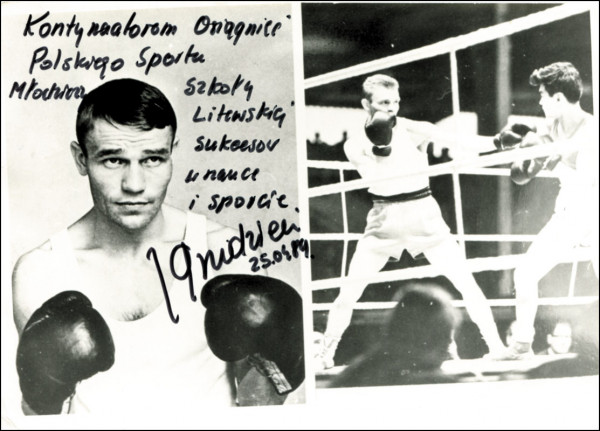 Kontynuatorom Osiągnięć
Polskiego Sportu
Młodzieży Szkoły
Litewskiej
Sukcesów
w nauce
i sporcie
JGrudzień